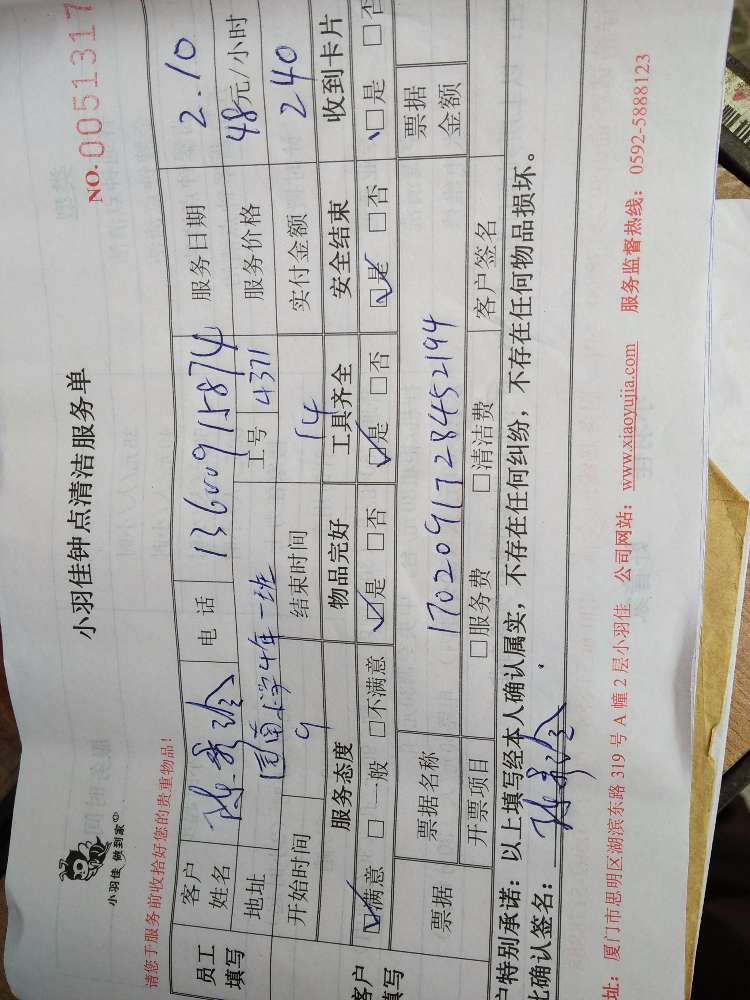 小羽佳 做到家
小羽佳钟点清洁服务单
NO.0051317
请您于服务前收拾好您的贵重物品!
员工填写
客户姓名 陈秀珍 电话 13600915874 服务日期 2.10
地址 园南小学4年一班 工号 4371 服务价格 48元/小时
开始时间 9 结束时间 14 实付金额 240
服务态度 物品完好 工具齐全 安全结束 收到卡片
☑满意 □一般 □不满意 ☑是 □否 ☑是 □否 ☑是 □否 ☑是 □否
票据 票据名称 1702091728452194 票据金额
开票项目 □服务费 □清洁费 客户签名
户特别承诺:以上填写经本人确认属实,不存在任何纠纷,不存在任何物品损坏。
比确认签名:陈秀珍
址:厦门市思明区湖滨东路 319 号 A 幢 2 层小羽佳 公司网站:www.xiaoyujia.com 服务监督热线:0592-5888123